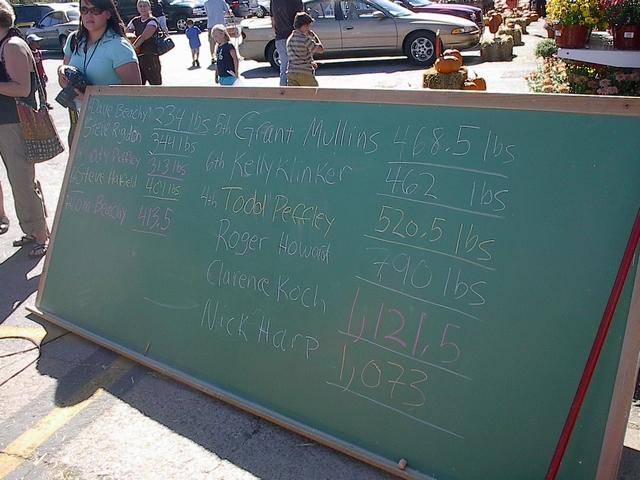 Dave Beachy 234 lbs
Steve Rigdon 344 lbs
Peffley 313 lbs
Steve 401 lbs
Tom Beachy 413.5
5th Grant Mullins 468.5 lbs
6th Kelly Klinker 462 lbs
4th Todd Peffley 520.5 lbs
Roger Howard 790 lbs
Clarence Koch 1,121.5
Nick Harp 1,073